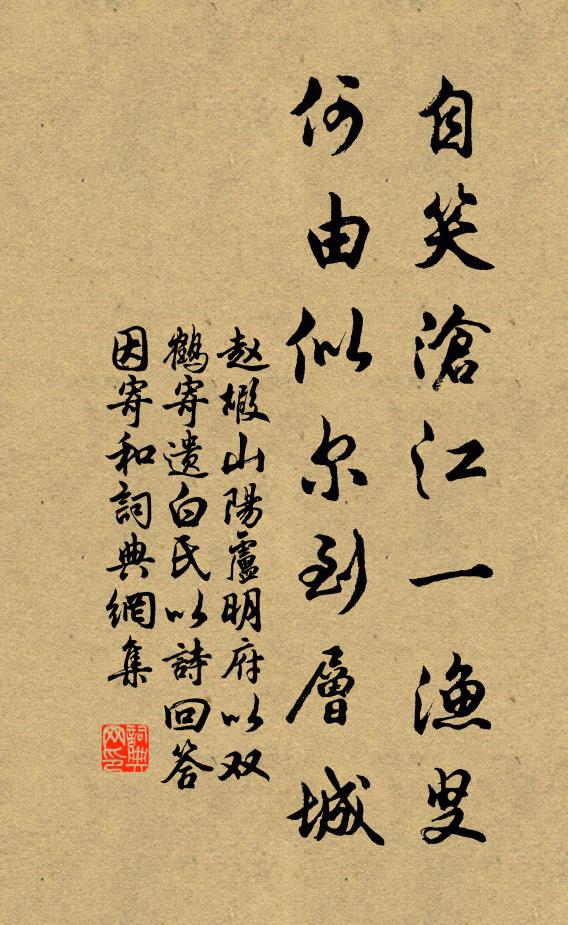 自笑滄江一漁叟
何由似尔到層城
赵嘏山陽盧明府以双
鶴寄遗白氏以詩回答
因寄和詞典網集
詞典网印